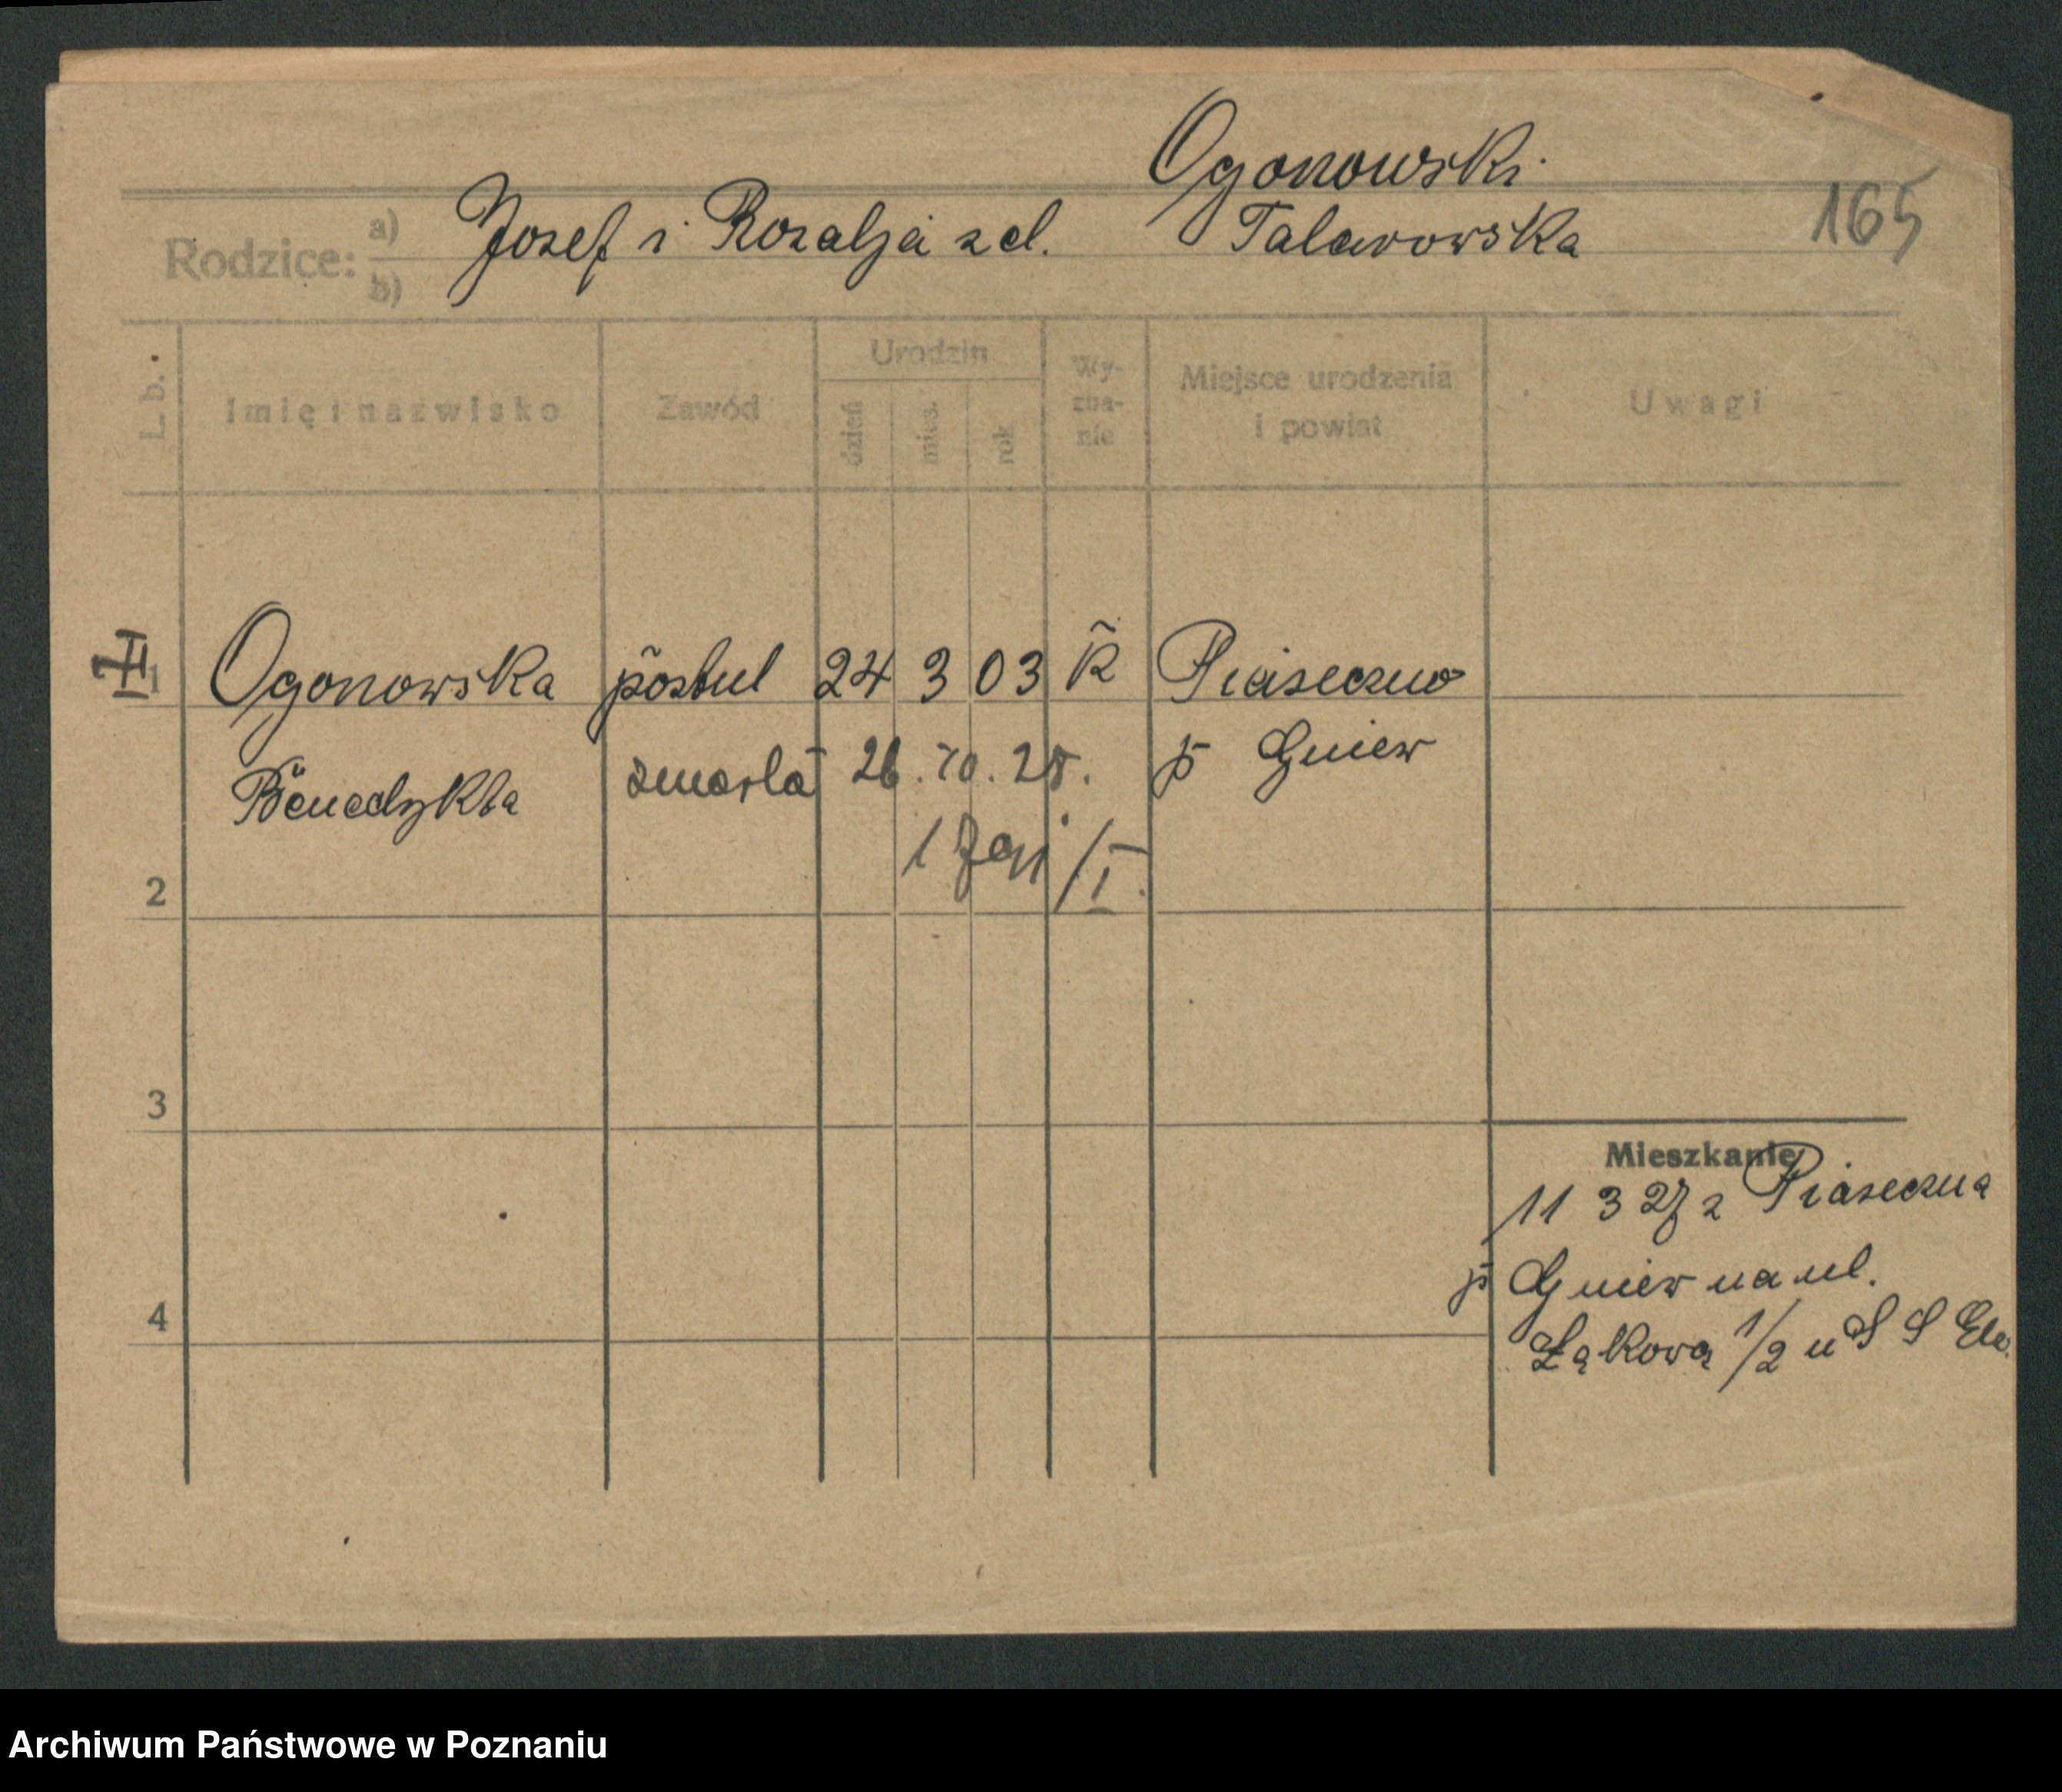 Ogonowski
165
Rodzice: a) b) Josef i Rozalja z d. Talarowska
L. b.
Imię i nazwisko
Zawód
Urodzin
dzień
mies.
rok
Wy-
zna-
nie
Miejsce urodzenia
i powiat
Uwagi
1 Ogonowska postul 24 3 03 R Piaseczno
Benedykta zmarła 26. 10. 28. p Gniew
2
3
4
Mieszkanie
11 3 27 z Piaseczna
p Gniew na ul.
Łąkową 1/2 u S S Elż.
Archiwum Państwowe w Poznaniu